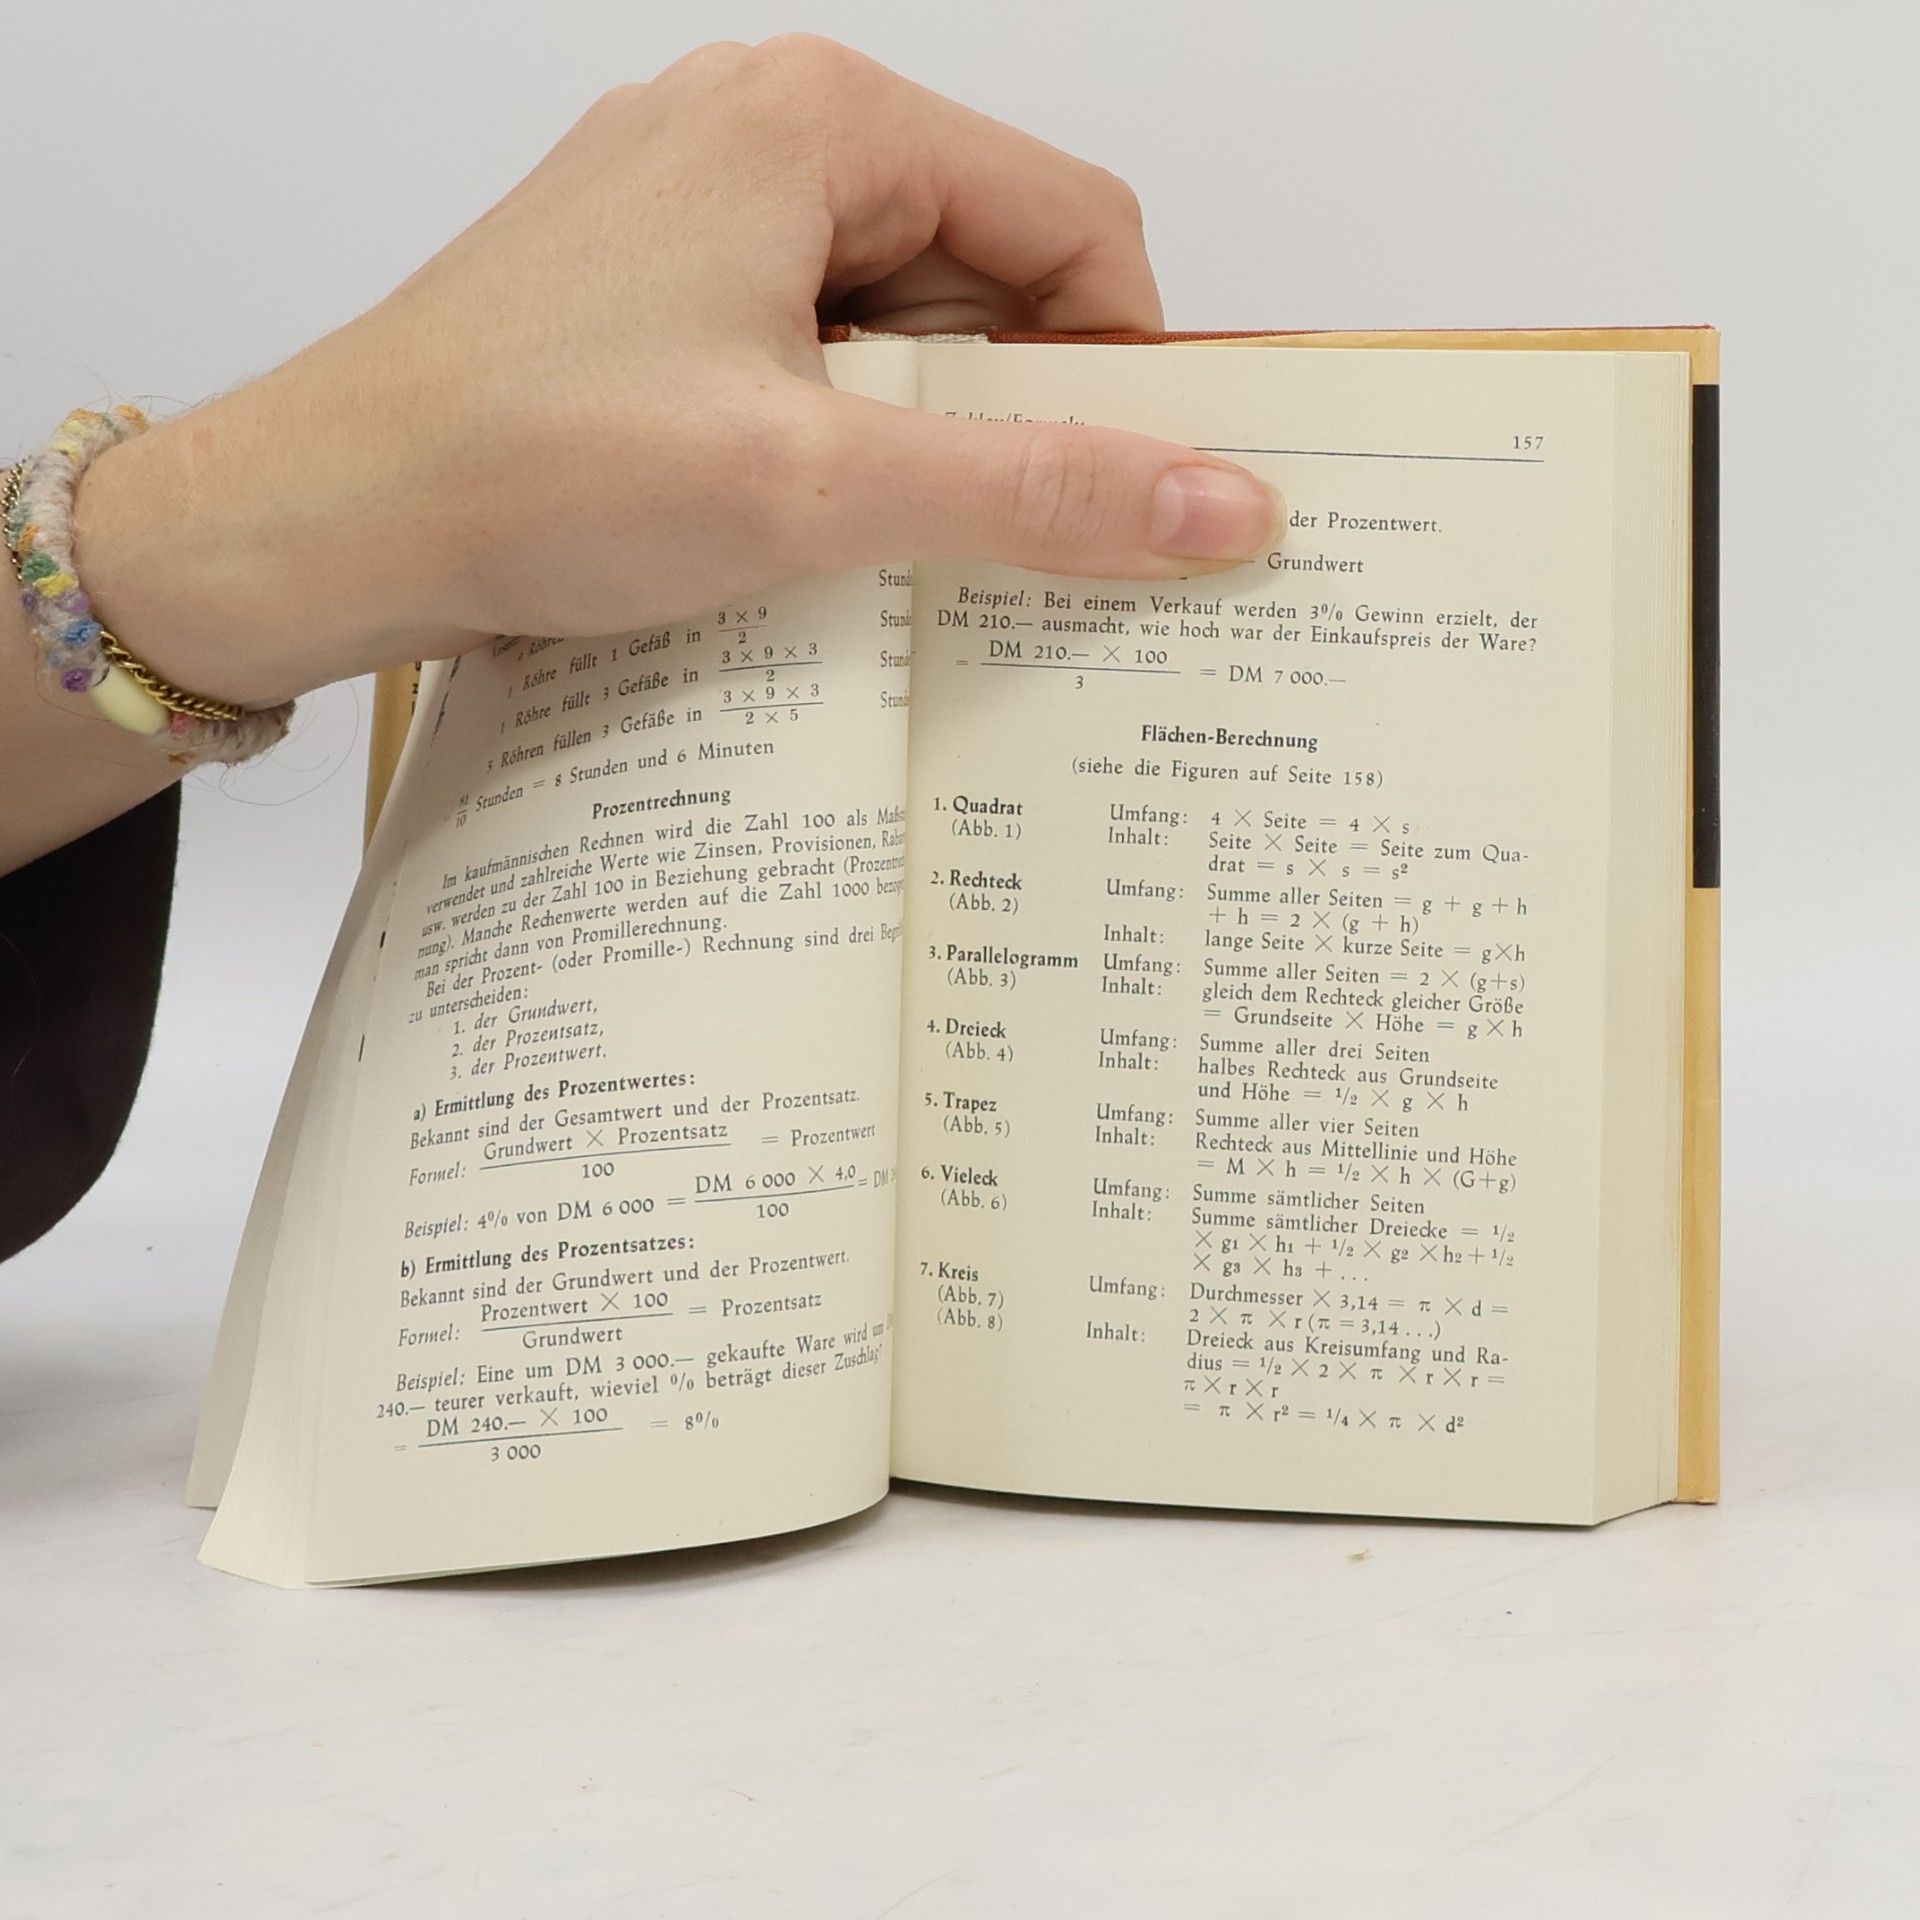 Stund
3 × 9
2
1 Röhre füllt 1 Gefäß in
Stund
3 × 9 × 3
2
1 Röhre füllt 3 Gefäße in
Stund
3 × 9 × 3
2 × 5
5 Röhren füllen 3 Gefäße in
Stund
81/10 Stunden = 8 Stunden und 6 Minuten
Prozentrechnung
Im kaufmännischen Rechnen wird die Zahl 100 als
verwendet und zahlreiche Werte wie Zinsen, Provisionen,
usw. werden zu der Zahl 100 in Beziehung gebracht
nung). Manche Rechenwerte werden auf die Zahl 1000
man spricht dann von Promillerechnung.
Bei der Prozent- (oder Promille-) Rechnung sind drei
zu unterscheiden:
1. der Grundwert,
2. der Prozentsatz,
3. der Prozentwert.
a) Ermittlung des Prozentwertes:
Bekannt sind der Gesamtwert und der Prozentsatz.
Formel: Grundwert × Prozentsatz = Prozentwert
100
Beispiel: 4% von DM 6 000 = DM 6 000 × 4,0 = DM
100
b) Ermittlung des Prozentsatzes:
Bekannt sind der Grundwert und der Prozentwert.
Formel: Prozentwert × 100 = Prozentsatz
Grundwert
Beispiel: Eine um DM 3 000.— gekaufte Ware wird um
240.— teurer verkauft, wieviel % beträgt dieser Zuschlag?
= DM 240.— × 100 = 8%
3 000
157
der Prozentwert.
Grundwert
Beispiel: Bei einem Verkauf werden 3% Gewinn erzielt, der
DM 210.— ausmacht, wie hoch war der Einkaufspreis der Ware?
= DM 210.— × 100 = DM 7 000.—
3
Flächen-Berechnung
(siehe die Figuren auf Seite 158)
1. Quadrat Umfang: 4 × Seite = 4 × s
(Abb. 1) Inhalt: Seite × Seite = Seite zum Qua-
drat = s × s = s²
2. Rechteck Umfang: Summe aller Seiten = g + g + h
(Abb. 2) + h = 2 × (g + h)
Inhalt: lange Seite × kurze Seite = g×h
3. Parallelogramm Umfang: Summe aller Seiten = 2 × (g+s)
(Abb. 3) Inhalt: gleich dem Rechteck gleicher Größe
= Grundseite × Höhe = g × h
4. Dreieck Umfang: Summe aller drei Seiten
(Abb. 4) Inhalt: halbes Rechteck aus Grundseite
und Höhe = 1/2 × g × h
5. Trapez Umfang: Summe aller vier Seiten
(Abb. 5) Inhalt: Rechteck aus Mittellinie und Höhe
= M × h = 1/2 × h × (G+g)
6. Vieleck Umfang: Summe sämtlicher Seiten
(Abb. 6) Inhalt: Summe sämtlicher Dreiecke = 1/2
× g1 × h1 + 1/2 × g2 × h2 + 1/2
× g3 × h3 + ...
7. Kreis Umfang: Durchmesser × 3,14 = π × d =
(Abb. 7) 2 × π × r (π = 3,14 ...)
(Abb. 8) Inhalt: Dreieck aus Kreisumfang und Ra-
dius = 1/2 × 2 × π × r × r =
π × r × r
= π × r² = 1/4 × π × d²